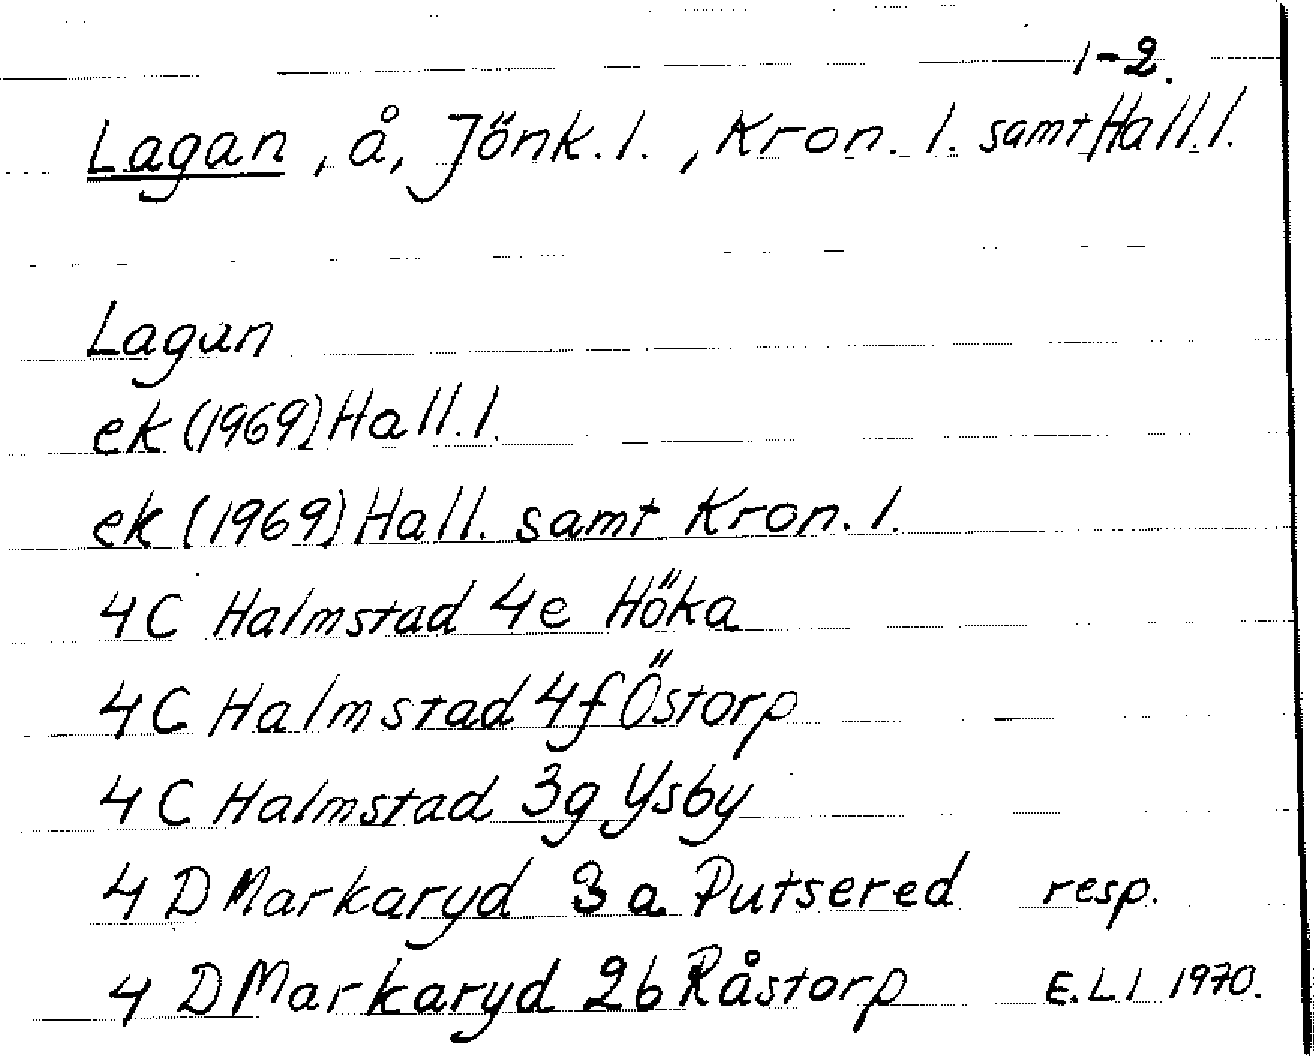 1-2.
Lagan, å, Jönk.l., Kron. l. samt Hall.l.
Lagan
ek (1969) Hall.l.
ek (1969) Hall. samt Kron.l.
4C Halmstad 4e Höka
4C Halmstad 4f Östorp
4C Halmstad 3g Ysby
4D Markaryd 3a Putsered resp.
4D Markaryd 2b Råstorp E.L1 1970.